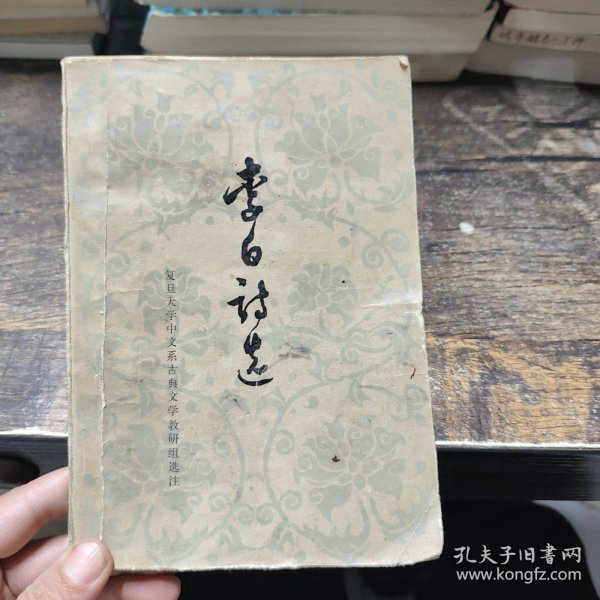 李白詩选
复旦大学中文系古典文学教研组选注
孔夫子旧書网
www.kongfz.com